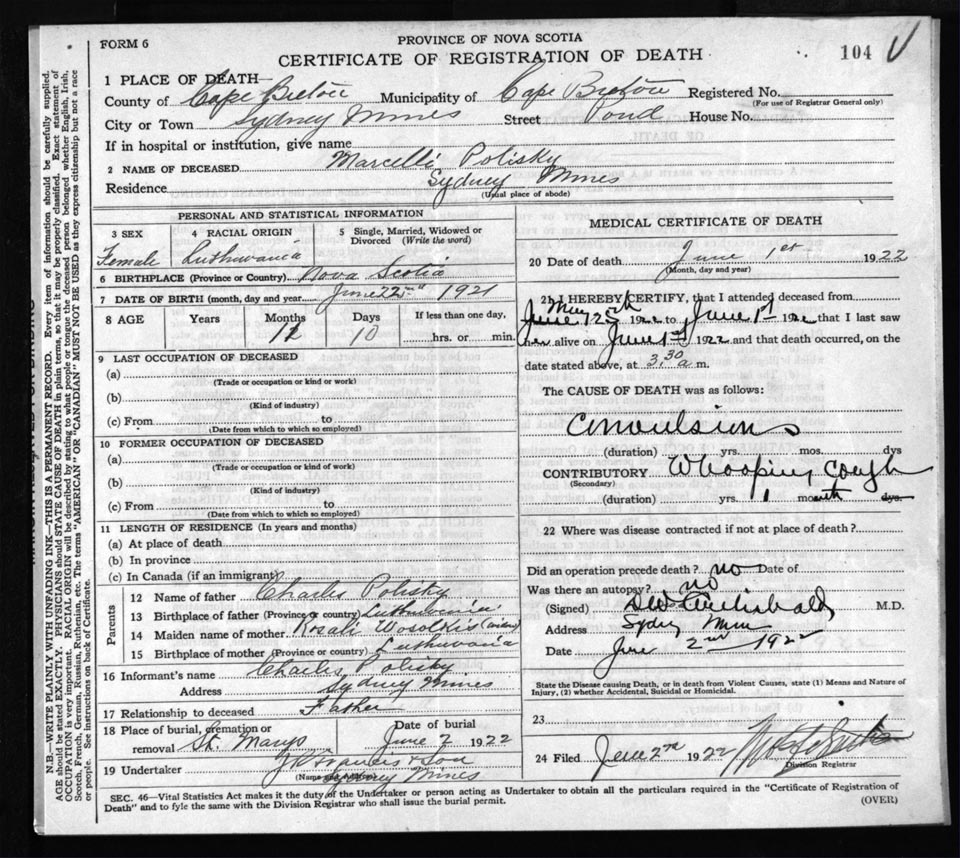 FORM 6
PROVINCE OF NOVA SCOTIA
CERTIFICATE OF REGISTRATION OF DEATH
104
N.B.—WRITE PLAINLY WITH UNFADING INK—THIS IS A PERMANENT RECORD. Every item of information should be carefully supplied.
AGE should be stated EXACTLY. PHYSICIANS should STATE CAUSE OF DEATH in plain terms, so that it may be properly classified. Exact statement of
OCCUPATION is very important. RACIAL ORIGIN will be described by stating to what people or tongue the deceased person belonged whether English, Irish,
Scotch, French, German, Russian, Ruthenian, etc. The terms "AMERICAN" OR "CANADIAN" MUST NOT BE USED as they express citizenship but not a race
or people. See instructions on back of Certificate.
1 PLACE OF DEATH
County of Cape Breton Municipality of Cape Breton Registered No.
(For use of Registrar General only)
City or Town Sydney Mines Street Pond House No.
If in hospital or institution, give name
2 NAME OF DECEASED Marcelli Polisky
Residence Sydney Mines
(Usual place of abode)
PERSONAL AND STATISTICAL INFORMATION
3 SEX 4 RACIAL ORIGIN 5 Single, Married, Widowed or
Divorced (Write the word)
Female Luthuvanca
6 BIRTHPLACE (Province or Country) Nova Scotia
7 DATE OF BIRTH (month, day and year) June 22nd 1921
8 AGE Years Months Days If less than one day,
10 hrs. or min.
9 LAST OCCUPATION OF DECEASED
(a)
(Trade or occupation or kind or work)
(b)
(Kind of industry)
(c) From to
(Date from which to which so employed)
10 FORMER OCCUPATION OF DECEASED
(a)
(Trade or occupation or kind of work)
(b)
(Kind of industry)
(c) From to
(Date from which to which so employed)
11 LENGTH OF RESIDENCE (In years and months)
(a) At place of death
(b) In province
(c) In Canada (if an immigrant)
Parents
12 Name of father Charles Polisky
13 Birthplace of father (Province or country) Luthuvania
14 Maiden name of mother Rosali
15 Birthplace of mother (Province or country) Luthuvania
16 Informant's name Charles Polisky
Address Sydney Mines
17 Relationship to deceased Father
18 Place of burial, cremation or Date of burial
removal St. Marys June 2 1922
19 Undertaker Francis & Son
Sydney Mines
MEDICAL CERTIFICATE OF DEATH
20 Date of death June 1st 1922
(Month, day and year)
21 I HEREBY CERTIFY, that I attended deceased from
May 25th 1922 to June 1st 1922 that I last saw
her alive on June 1st 1922 and that death occurred, on the
date stated above, at 3.30 a m.
The CAUSE OF DEATH was as follows:
Convulsions
(duration) yrs. mos. dys
CONTRIBUTORY Whooping Cough
(Secondary)
(duration) yrs. 1 month dys.
22 Where was disease contracted if not at place of death?
Did an operation precede death? no Date of
Was there an autopsy? no
(Signed) M.D.
Address Sydney Mines
Date June 2nd 1922
State the Disease causing Death, or in death from Violent Causes, state (1) Means and Nature of
Injury, (2) whether Accidental, Suicidal or Homicidal.
23
24 Filed June 2nd 1922
Division Registrar
SEC. 46—Vital Statistics Act makes it the duty of the Undertaker or person acting as Undertaker to obtain all the particulars required in the "Certificate of Registration of
Death" and to fyle the same with the Division Registrar who shall issue the burial permit.
(OVER)